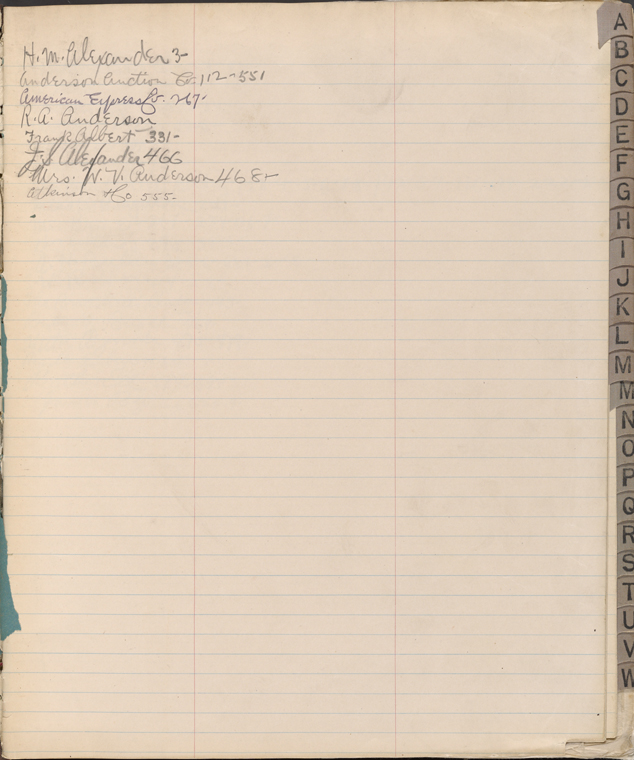 H. M. Alexander 3-
Anderson Auction Co. 112-551
American Express Co. 267-
R. A. Anderson
Frank Albert 331-
J. S. Alexander 466
Mrs. W. V. Anderson 468-
Atkinson & Co 555-
A
B
C
D
E
F
G
H
I
J
K
L
M
M
N
O
P
Q
R
S
T
U
V
W